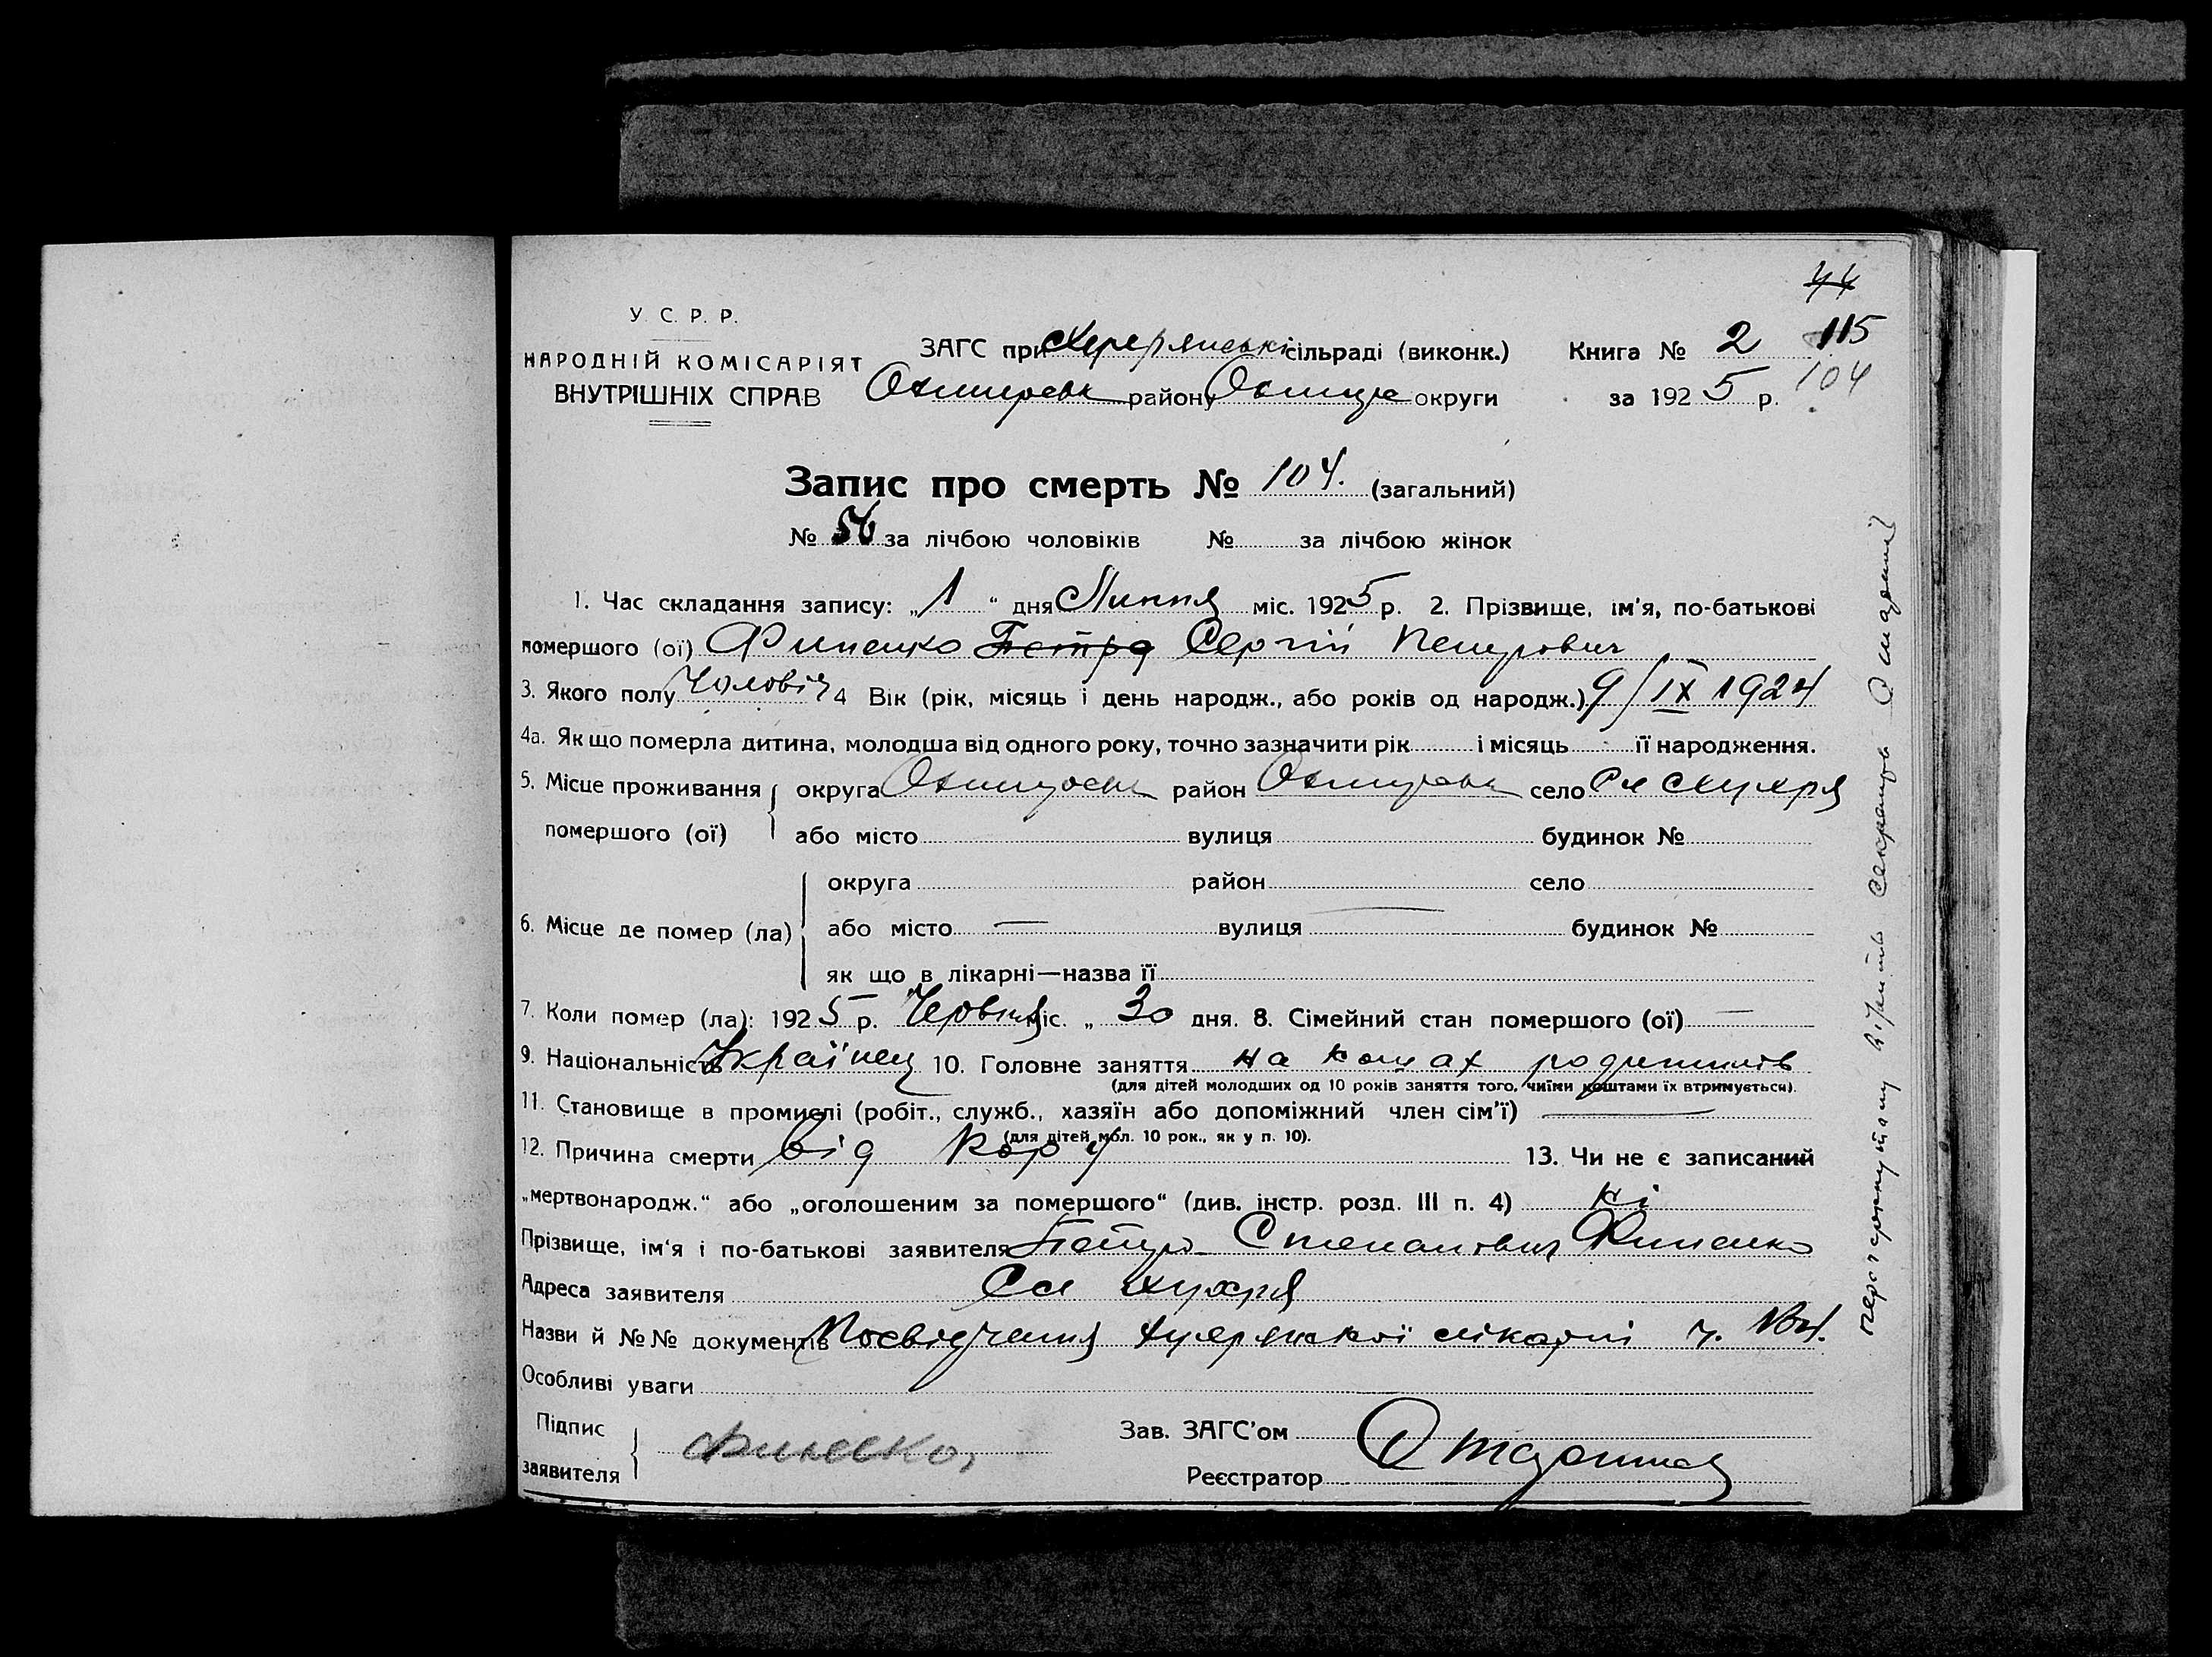 44
У. С. Р. Р.
НАРОДНІЙ КОМІСАРІЯТ
ВНУТРІШНІХ СПРАВ
ЗАГС при сільраді (виконк.) Книга № 2 115
району округи за 1925 р. 104
Запис про смерть № 104. (загальний)
№ 56 за лічбою чоловіків № за лічбою жінок
1. Час складання запису: „1“ дня Липня міс. 1925 р. 2. Прізвище, ім'я, по-батькові
помершого (ої) Финенко Петро Сергій Петрович
3. Якого полу Чоловіч 4 Вік (рік, місяць і день народж., або років од народж.) 9/IX 1924
4а. Як що померла дитина, молодша від одного року, точно зазначити рік і місяць її народження.
5. Місце проживання помершого (ої) округа Охтирськ район Охтирськ село
або місто вулиця будинок №
6. Місце де помер (ла) округа район село
або місто — вулиця — будинок №
як що в лікарні—назва її
7. Коли помер (ла): 1925 р. Червня міс. „ 30 дня. 8. Сімейний стан помершого (ої) —
9. Національність Українец 10. Головне заняття на кощах родителів
(для дітей молодших од 10 років заняття того, чиїми коштами їх втримується).
11. Становище в промислі (робіт., служб., хазяїн або допоміжний член сім'ї) —
(для дітей мол. 10 рок., як у п. 10).
12. Причина смерти від кору 13. Чи не є записаний
„мертвонародж.“ або „оголошеним за помершого“ (див. інстр. розд. III п. 4) ні
Прізвище, ім'я і по-батькові заявителя Петро Степанович Финенко
Адреса заявителя Сл Хухря
Назви й №№ документів Посвідчення лікарні ч.
Особливі уваги
Підпис заявителя Финенко,
Зав. ЗАГС'ом
Реєстратор